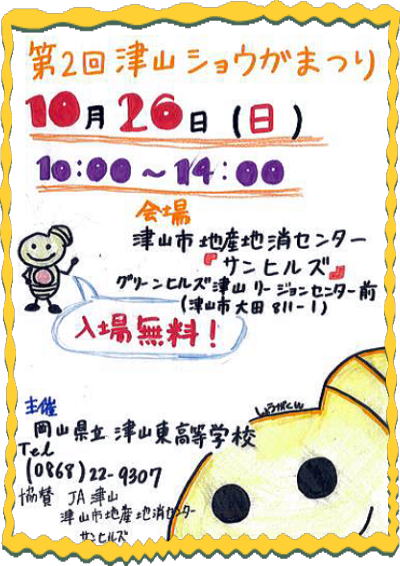 第2回津山ショウがまつり
10月26日(日)
10:00～14:00
会場
津山市地産地消センター
『サンヒルズ』
グリーンヒルズ津山リージョンセンター前
(津山市大田811-1)
入場無料!
しょうがくん
主催
岡山県立津山東高等学校
Tel
(0868)22-9307
協賛 JA津山
津山市地産地消センター
サンヒルズ